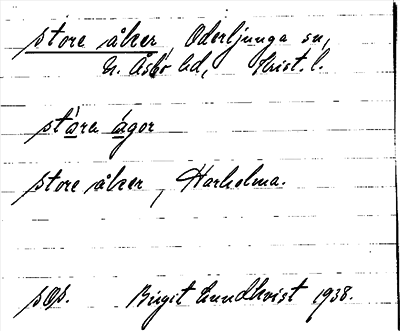 store åker, Oderljunga sn,
N. Åsbo hd, Krist. l.
ståre ågor
store åker, Harholma.
sOs. Birgit Lundkvist 1938.